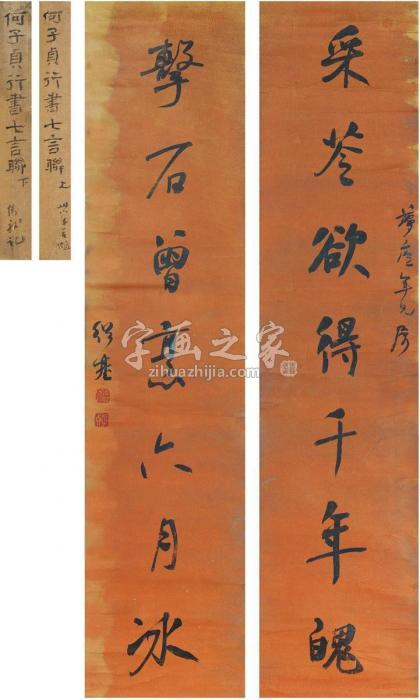 采苓欲得千年魄
夢廬年兄屬
擊石曾六月冰
紹基
何子貞行書七言聯 上
何子貞行書七言聯 下
字画之家
zihuazhijia.com